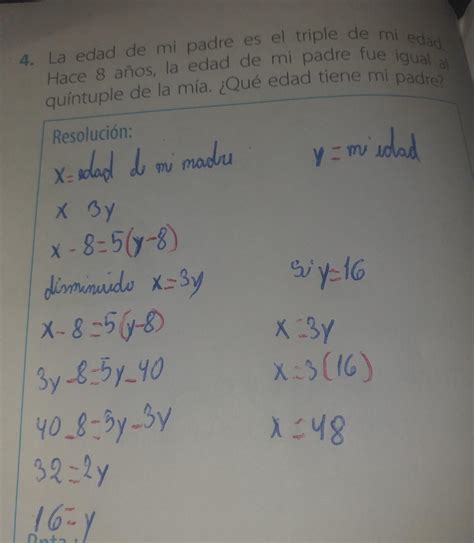 4. La edad de mi padre es el triple de mi edad.
Hace 8 años, la edad de mi padre fue igual al
quíntuple de la mía. ¿Qué edad tiene mi padre?
Resolución:
x=edad de mi madre
y=mi edad
x 3y
x-8=5(y-8)
disminuido x=3y
x-8=5(y-8)
3y-8=5y-40
40-8=5y-3y
32=2y
16=y
si y=16
x=3y
x=3(16)
x=48